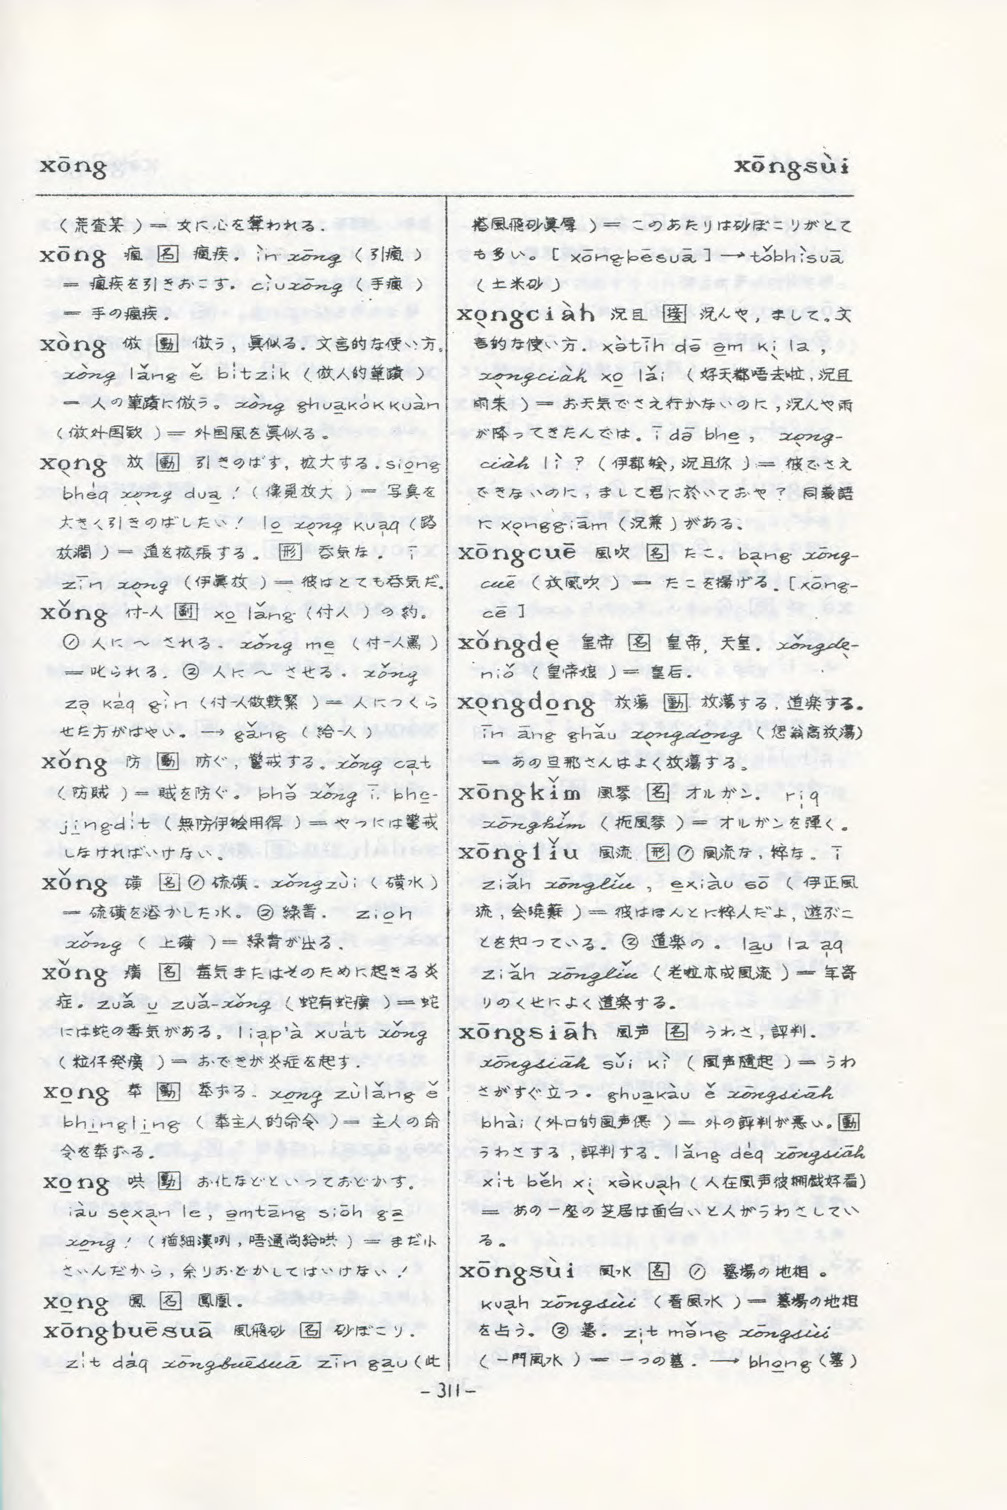 xōng
xōngsùi
(荒査某)＝女に心を奪われる.
xōng 瘋 [名] 瘋疾. ìn xōng (引瘋)
＝瘋疾を引きおこす. ciùxōng (手瘋)
＝手の瘋疾.
xòng 倣 [動] 倣う, 眞似る. 文言的な使い方.
xòng lǎng ě bı̍tzı̍k (倣人的筆蹟)
＝人の筆蹟に倣う. xòng ghuạkȯkkuàn
(倣外国款)＝外国風を眞似る.
xo̤ng 放 [動] 引きのばす, 拡大する. siọng
bhe̍q xo̤ng dua̤! (像覓放大)＝写真を
大きく引きのばしたい! lo̤ xo̤ng kuaq (路
放濶)＝道を拡張する. [形] 呑気な. ī
zīn xo̤ng (伊眞放)＝彼はとても呑気だ.
xǒng 付-人 [副] xo̤ lǎng (付人)の約.
① 人に〜される. xǒng mẹ (付-人罵)
＝叱られる. ② 人に〜させる. xǒng
zọ káq gı̍n (付-人做較緊)＝人につくら
せた方がはやい. → gǎng (給-人)
xǒng 防 [動] 防ぐ, 警戒する. xǒng cạt
(防賊)＝賊を防ぐ. bhǒ xǒng ī bhe̤-
jı̤ngdı̍t (無防伊𣍐用得)＝やつには警戒
しなければいけない.
xǒng 磺 [名] ① 硫磺. xǒngzùi (磺水)
＝硫磺を溶かした水. ② 緑青. ziọh
xǒng (上磺)＝緑青が出る.
xǒng 癀 [名] 毒気またはそのために起きる炎
症. zuǎ ṳ zuǎ-xǒng (蛇有蛇癀)＝蛇
には蛇の毒気がある. lia̍p'à xuát xǒng
(粒仔発癀)＝おできが炎症を起す.
xo̤ng 奉 [動] 奉ずる. xo̤ng zùlǎng ě
bhı̤nglı̤ng (奉主人的命令)＝主人の命
令を奉ずる.
xo̤ng 哄 [動] お化などといっておどかす.
iàu sẹxạn le, a̤mtāng siōh ga̤
xo̤ng! (猶細漢咧, 唔通尚給哄)＝まだ小
さいんだから, 余りおどかしてはいけない!
xo̤ng 鳳 [名] 鳳凰.
xōngbuēsuā 風飛砂 [名] 砂ぼこり.
zı̍t da̍q xōngbuēsuā zīn ga̤u (此
搭風飛砂眞𠢕)＝このあたりは砂ぼこりがとて
も多い. [xōngbēsuā] → tǒbhìsuā
(土米砂)
xọngciàh 況且 [接] 況んや, まして. 文
言的な使い方. xǒtīh dō a̤m kị la,
xọngciàh xo̤ lǎi (好天都唔去啦, 況且
雨来)＝お天気でさえ行かないのに, 況んや雨
が降ってきたんでは. ī dō bhe̤, xọng-
ciàh lì? (伊都𣍐, 況且你)＝彼でさえ
できないのに, まして君に於いておや? 同義語
に xọnggiām (況兼)がある.
xōngcuē 風吹 [名] たこ. bạng xōng-
cuē (放風吹)＝たこを揚げる. [xōng-
cē]
xǒngdẹ 皇帝 [名] 皇帝, 天皇. xǒngdẹ-
niǒ (皇帝娘)＝皇后.
xọngdo̤ng 放蕩 [動] 放蕩する, 道楽する.
īn āng ghǎu xọngdo̤ng (𪜶翁𠢕放蕩)
＝あの旦那さんはよく放蕩する.
xōngkǐm 風琴 [名] オルガン. rı̍q
xōngkǐm (扼風琴)＝オルガンを弾く.
xōngliǔ 風流 [形] ① 風流な, 粋な. ī
ziǎh xōngliǔ, e̤xiàu sō (伊正風
流, 会曉蘇)＝彼はほんとに粋人だよ, 遊ぶこ
とを知っている. ② 道楽の. la̤u la aq
ziǎh xōngliǔ (老啦亦成風流)＝年寄
りのくせによく道楽する.
xōngsiāh 風声 [名] うわさ, 評判.
xōngsiāh sǔi kì (風声隨起)＝うわ
さがすぐ立つ. ghuạkàu ě xōngsiāh
bhài (外口的風声僫)＝外の評判が悪い. [動]
うわさする, 評判する. lǎng dėq xōngsiāh
xı̍t běh xị xòkuạh (人在風声彼棚戯好看)
＝あの一座の芝居は面白いと人がうわさしてい
る.
xōngsùi 風水 [名] ① 墓場の地相.
kuạh xōngsùi (看風水)＝墓場の地相
を占う. ② 墓. zı̍t mǎng xōngsùi
(一門風水)＝一つの墓. → bho̤ng (墓)
-311-